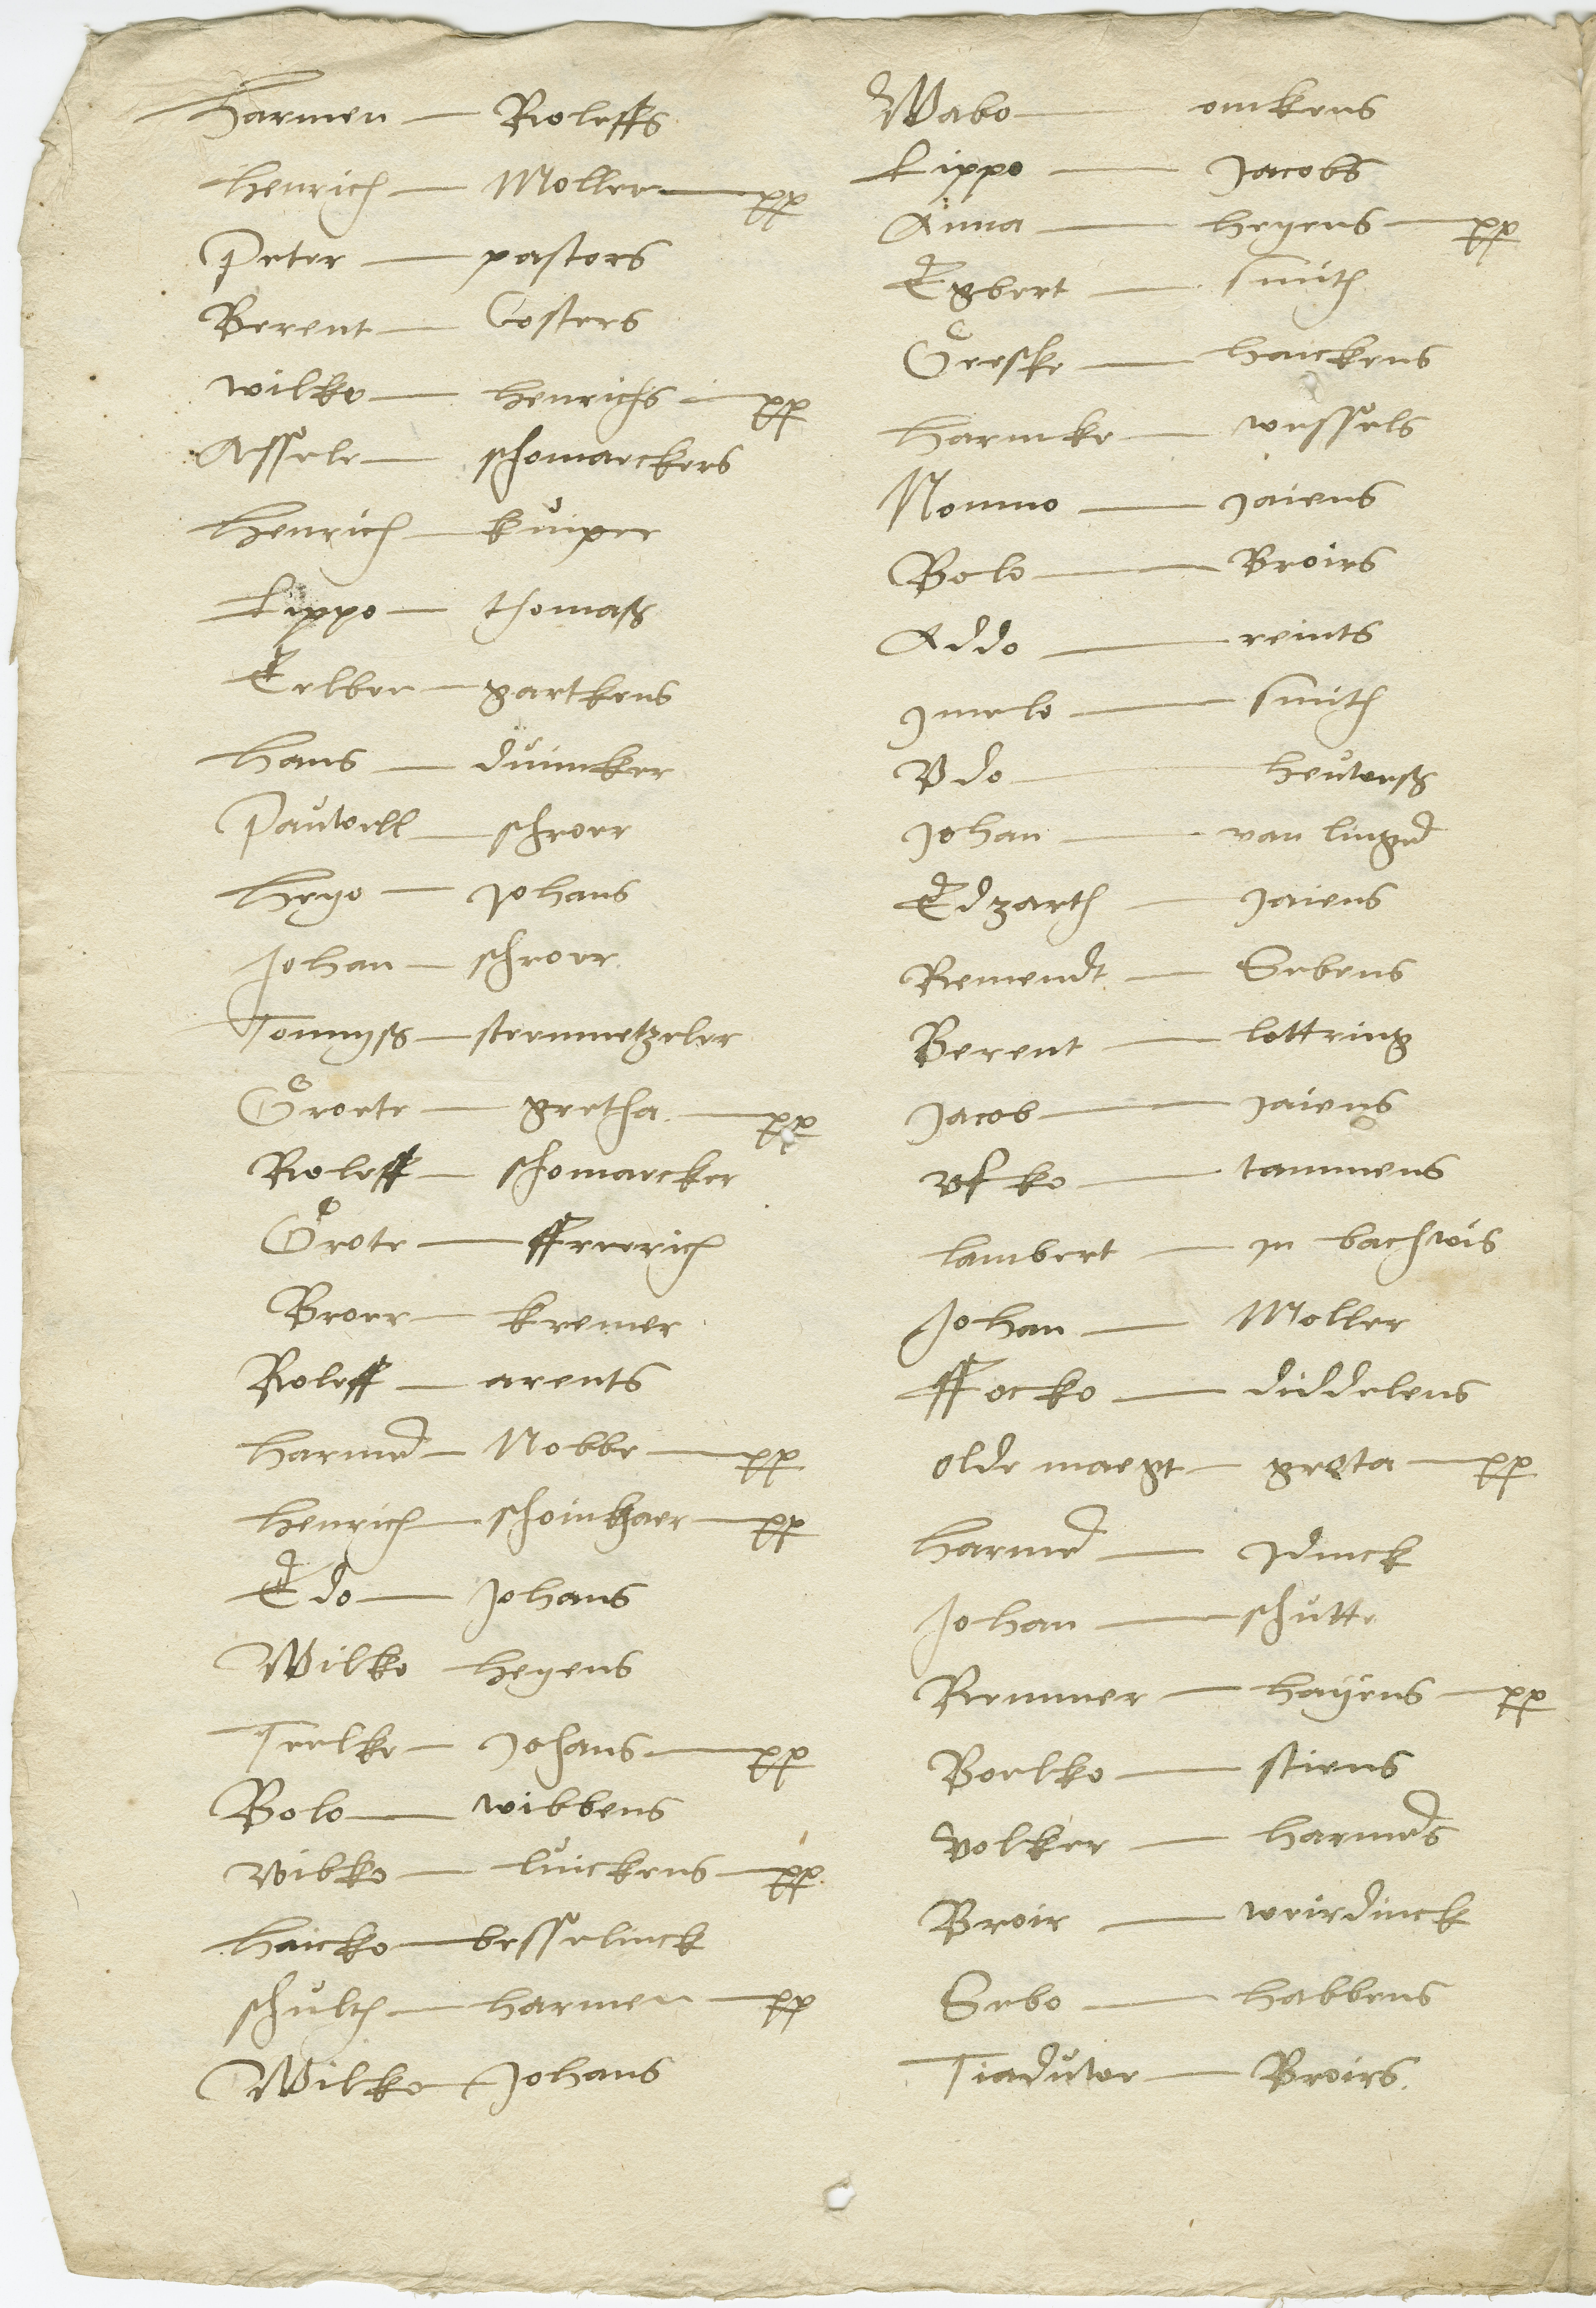 Harmen — Roleffs
Henrich — Moller — pp
Peter — pastors
Berent — Costers
Wilko — Henrichs — pp
Assele — schomaeckers
Henrich — kuiper
Lippo — thomaß
Eelber — gartkens
Hans — duincker
Pauwell — schroer
Heyo — Johans
Johan — schroer
Tonnyß — steenmetzeler
Groete — gretha — pp
Roleff — schomaecker
Grote — ffreerich
Broer — kremer
Roleff — arents
Harmen — Nobbe — pp
Henrich — — pp
Edo — Johans
Wilko Heyens
Teelke — Johans — pp
Bolo — wibbens
Wibko — luickens — pp
Haicko — besselinck
schulth — Harmen — pp
Wilko — Johans
Wabo — omkens
Lippo — Jacobs
Anna — Heyens — pp
Egbert — smith
Greske — Haickens
Harmke — wessels
Nonno — Jaiens
Bolo — Broirs
Addo — reints
Imelo — smith
Udo — Heuwenß
Johan — van lingen
Edzarth — Jaiens
Remendt — Sebens
Berent — lottring
Jacob — Jaiens
Ufko — tammens
Lambert — in bachwis
Johan — Moller
ffocko — diddelens
olde maegt — greta — pp
Harmen — Idinck
Johan — schutte
Remmer — Hayens — pp
Boelko — stiens
Volker — Harmens
Broir — weirdinck
Sebo — Habbens
Tiaduwer — Broirs